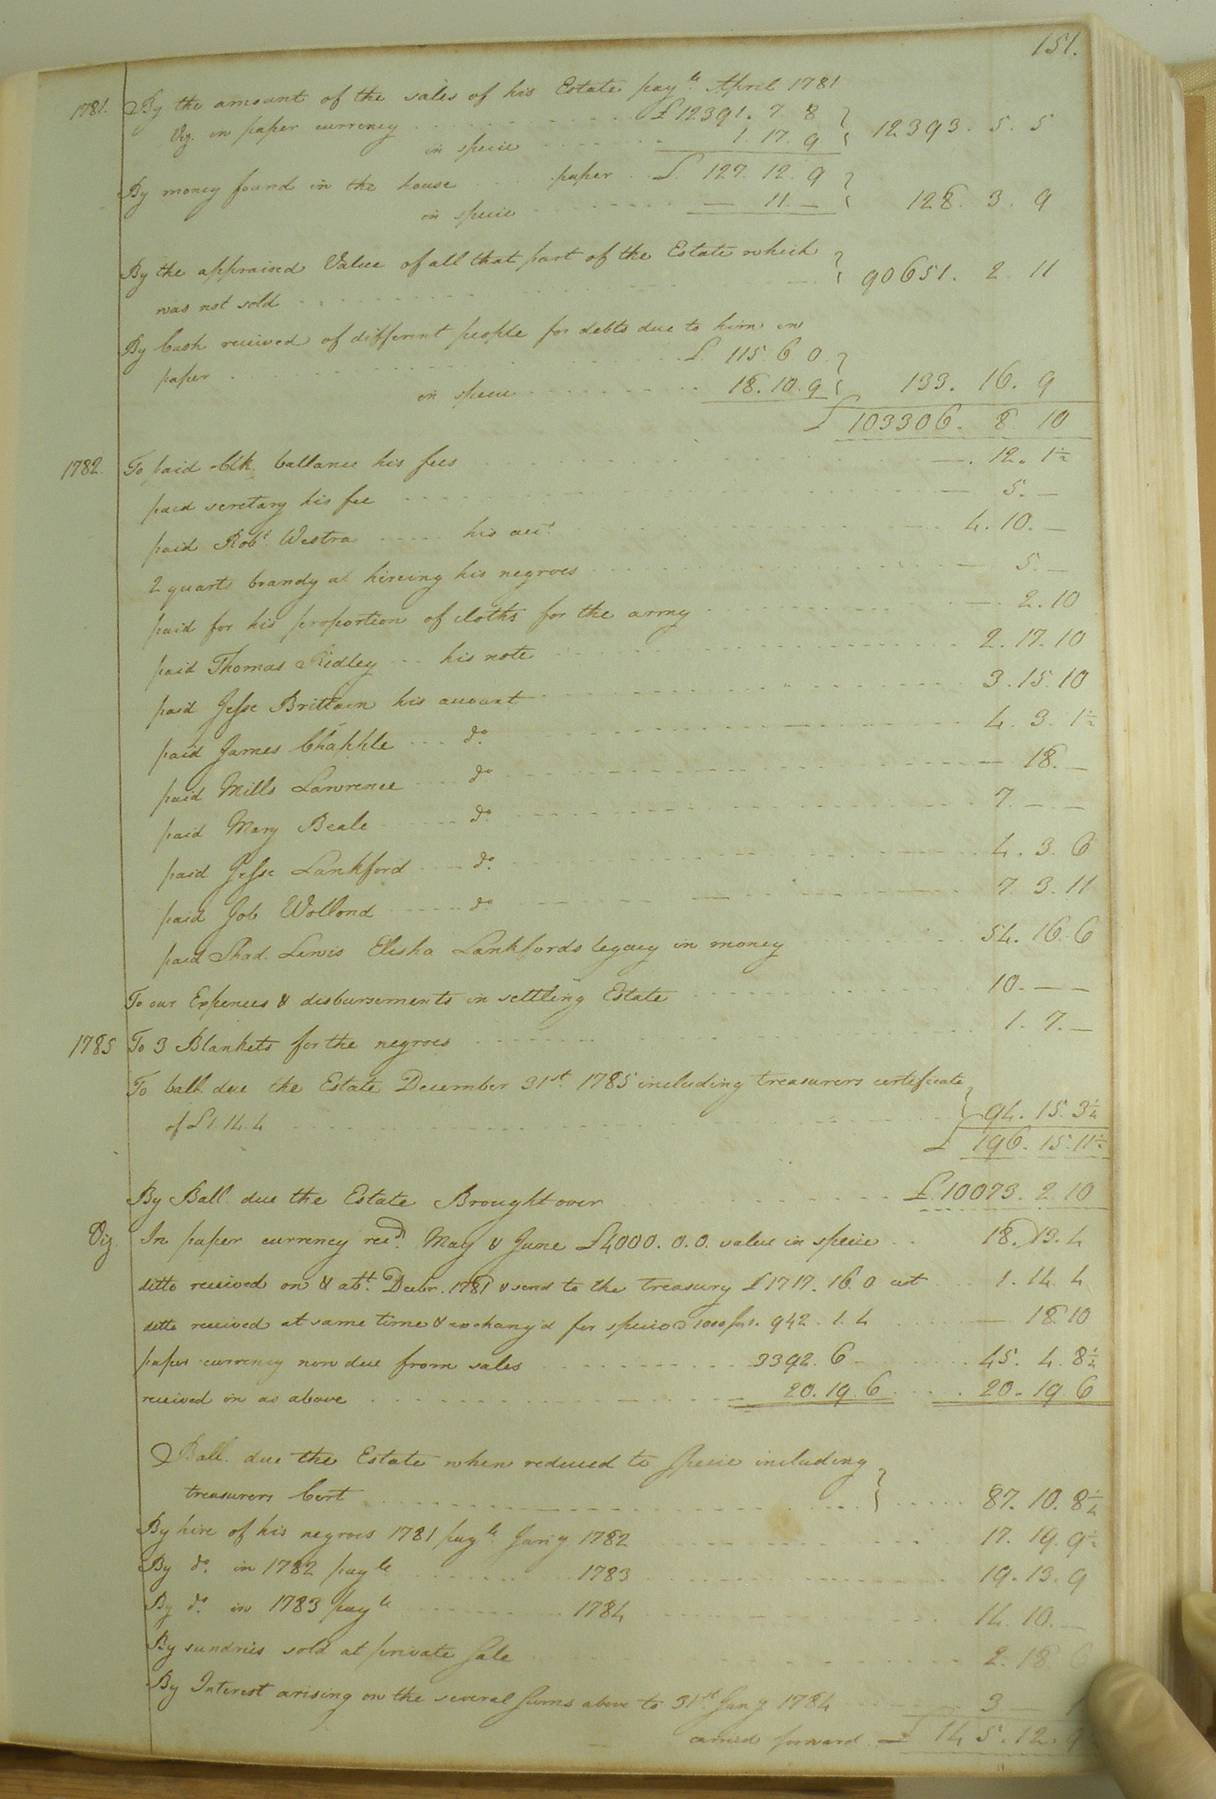 151.
1781. By the amount of the sales of his Estate pay.le April 1781
Viz. in paper currency £12391. 7 8 } 12393. 5. 5
in specie 1. 17. 9
By money found in the house paper £ 127. 12. 9 } 128. 3. 9
in specie — 11. —
By the appraised Value of all that part of the Estate which
was not sold } 90651. 2. 11
By Cash received of different people for debts due to him in
paper £ 115. 6 0 } 133. 16. 9
in specie 18. 10. 9
£ 103306. 8 10
1782. To paid Clk. ballance his fees —. 12. 1½
paid secretary his fee — 5. —
paid Robt. Westra his acct. 4. 10. —
2 quarts brandy at hireing his negroes — 5. —
paid for his proportion of cloths for the army —. 2. 10
paid Thomas Ridley his note 2. 17. 10
paid Jesse Brittain his account 3. 15. 10
paid James Chapple do. 4. 3. 1½
paid Mills Lawrence do — 18. —
paid Mary Beale do. 7. — —
paid Jesse Lankford do. 4. 3. 6
paid Job Wollond do 7 3. 11
paid Shad. Lewis Elisha Lankfords legacy in money 54. 16. 6
To our Expences & disbursements in settling Estate 10. — —
1785 To 3 Blankets for the negroes 1. 7. —
To ball. due the Estate December 31st. 1785 including treasurers certificate
of £1. 14. 4 } 94. 15. 3¼
£ 196. 15. 11½
By Ball. due the Estate Brought over £10073. 2. 10
Viz. In paper currency recd. May & June £4000. 0. 0. value in specie 18. 13. 4
ditto received on & abt. Decbr. 1781 & send to the treasury £1717. 16. 0 cert 1. 14. 4
ditto received at same time & exchang'd for specie 1000 for 1. 942. 1. 4 — 18 10
paper currency now due from sales 3392. 6 45. 4. 8½
received in as above 20. 19. 6 20. 19 6
Ball. due the Estate when reduced to specie including
treasurers Cert } 87. 10. 8¼
By hire of his negroes 1781 pay.le Jany 1782 17. 19. 9½
By do. in 1782 payle 1783 19. 13. 9
By do. in 1783 payle 1784 14. 10. —
By sundries sold at private sale 2. 18 6
By Interest arising on the several sums above to 31st Jany 1784 3 —
carried forward £ 145. 12. 9